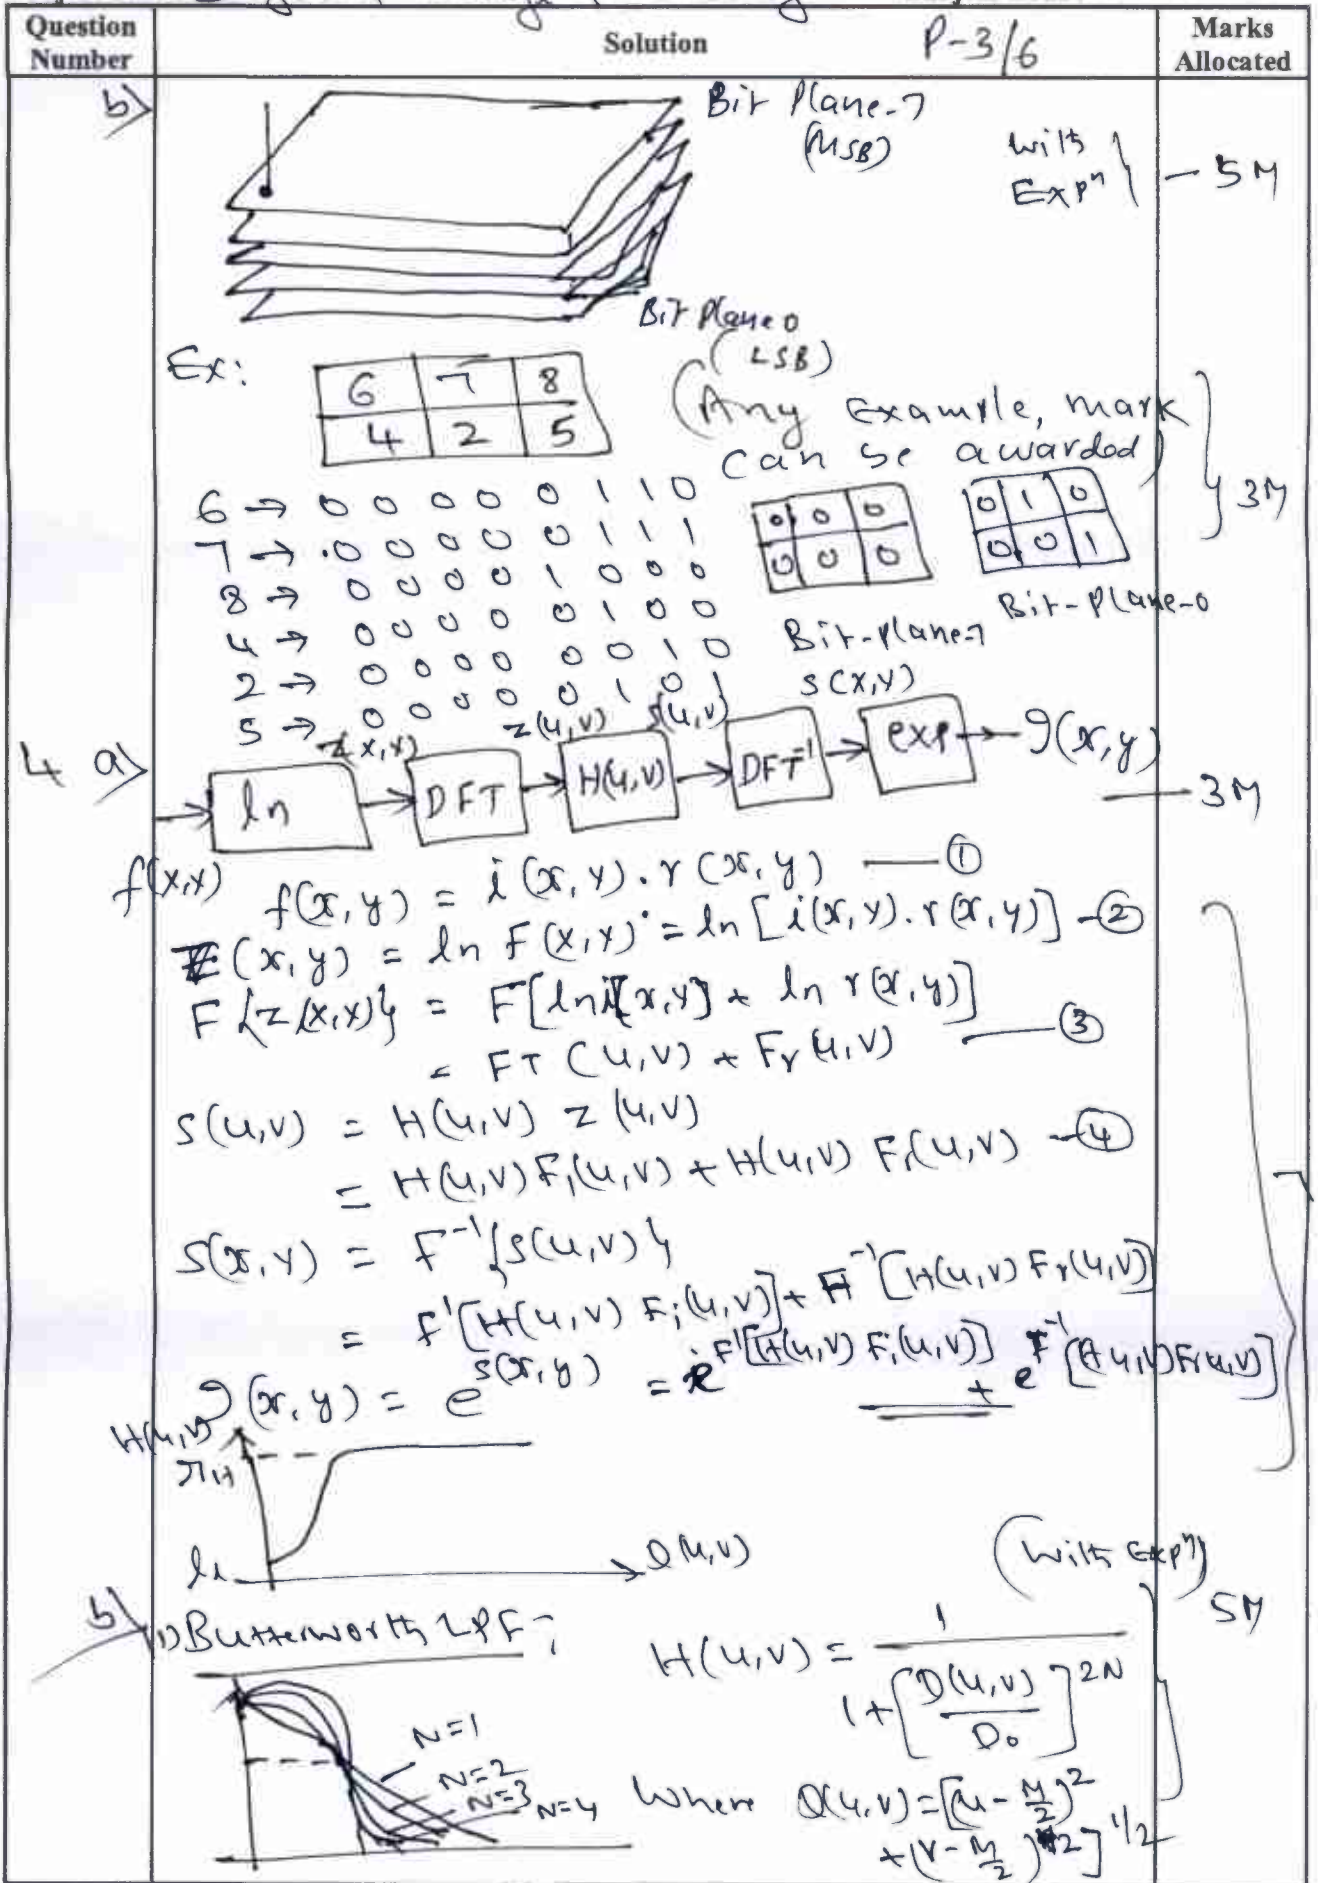 Question Number
Solution
P-3/6
Marks Allocated
b)
Bit Plane-7
(MSB)
with
Expⁿ
- 5M
Bit Plane 0
(LSB)
Ex:
6 7 8
4 2 5
(Any Example, mark
can be awarded)
3M
6 → 0 0 0 0 0 1 1 0
7 → 0 0 0 0 0 1 1 1
8 → 0 0 0 0 1 0 0 0
4 → 0 0 0 0 0 1 0 0
2 → 0 0 0 0 0 0 1 0
5 → 0 0 0 0 0 1 0 1
0 0 0
0 0 0
Bit-plane-7
0 1 0
0 0 1
Bit-Plane-0
4 a)
f(x,x)
ln
z(x,x)
DFT
z(u,v)
H(u,v)
s(u,v)
DFT⁻¹
s(x,y)
exp
g(x,y)
3M
f(x,y) = i(x,y).r(x,y) — ①
Z(x,y) = ln F(x,x) = ln[i(x,y).r(x,y)] - ②
F{z(x,x)} = F[ln i[x,y] + ln r(x,y)]
= FT(u,v) + Fr(u,v) — ③
S(u,v) = H(u,v) z(u,v)
= H(u,v) Fi(u,v) + H(u,v) Fr(u,v) - ④
S(x,y) = F⁻¹{s(u,v)}
= F'[H(u,v) Fi(u,v)] + F⁻¹[H(u,v) Fr(u,v)]
g(x,y) = e^s(x,y) = e^F'[H(u,v) Fi(u,v)] + e^F⁻¹[H(u,v) Fr(u,v)]
7
H(u,v)
D(u,v)
(With Expⁿ)
5M
b)
1) Butterworth LPF :
H(u,v) = 1 / 1+[D(u,v)/D₀]^2N
N=1
N=2
N=3
N=4
Where D(u,v) = [(u - M/2)²
+ (v - M/2)^2]^1/2